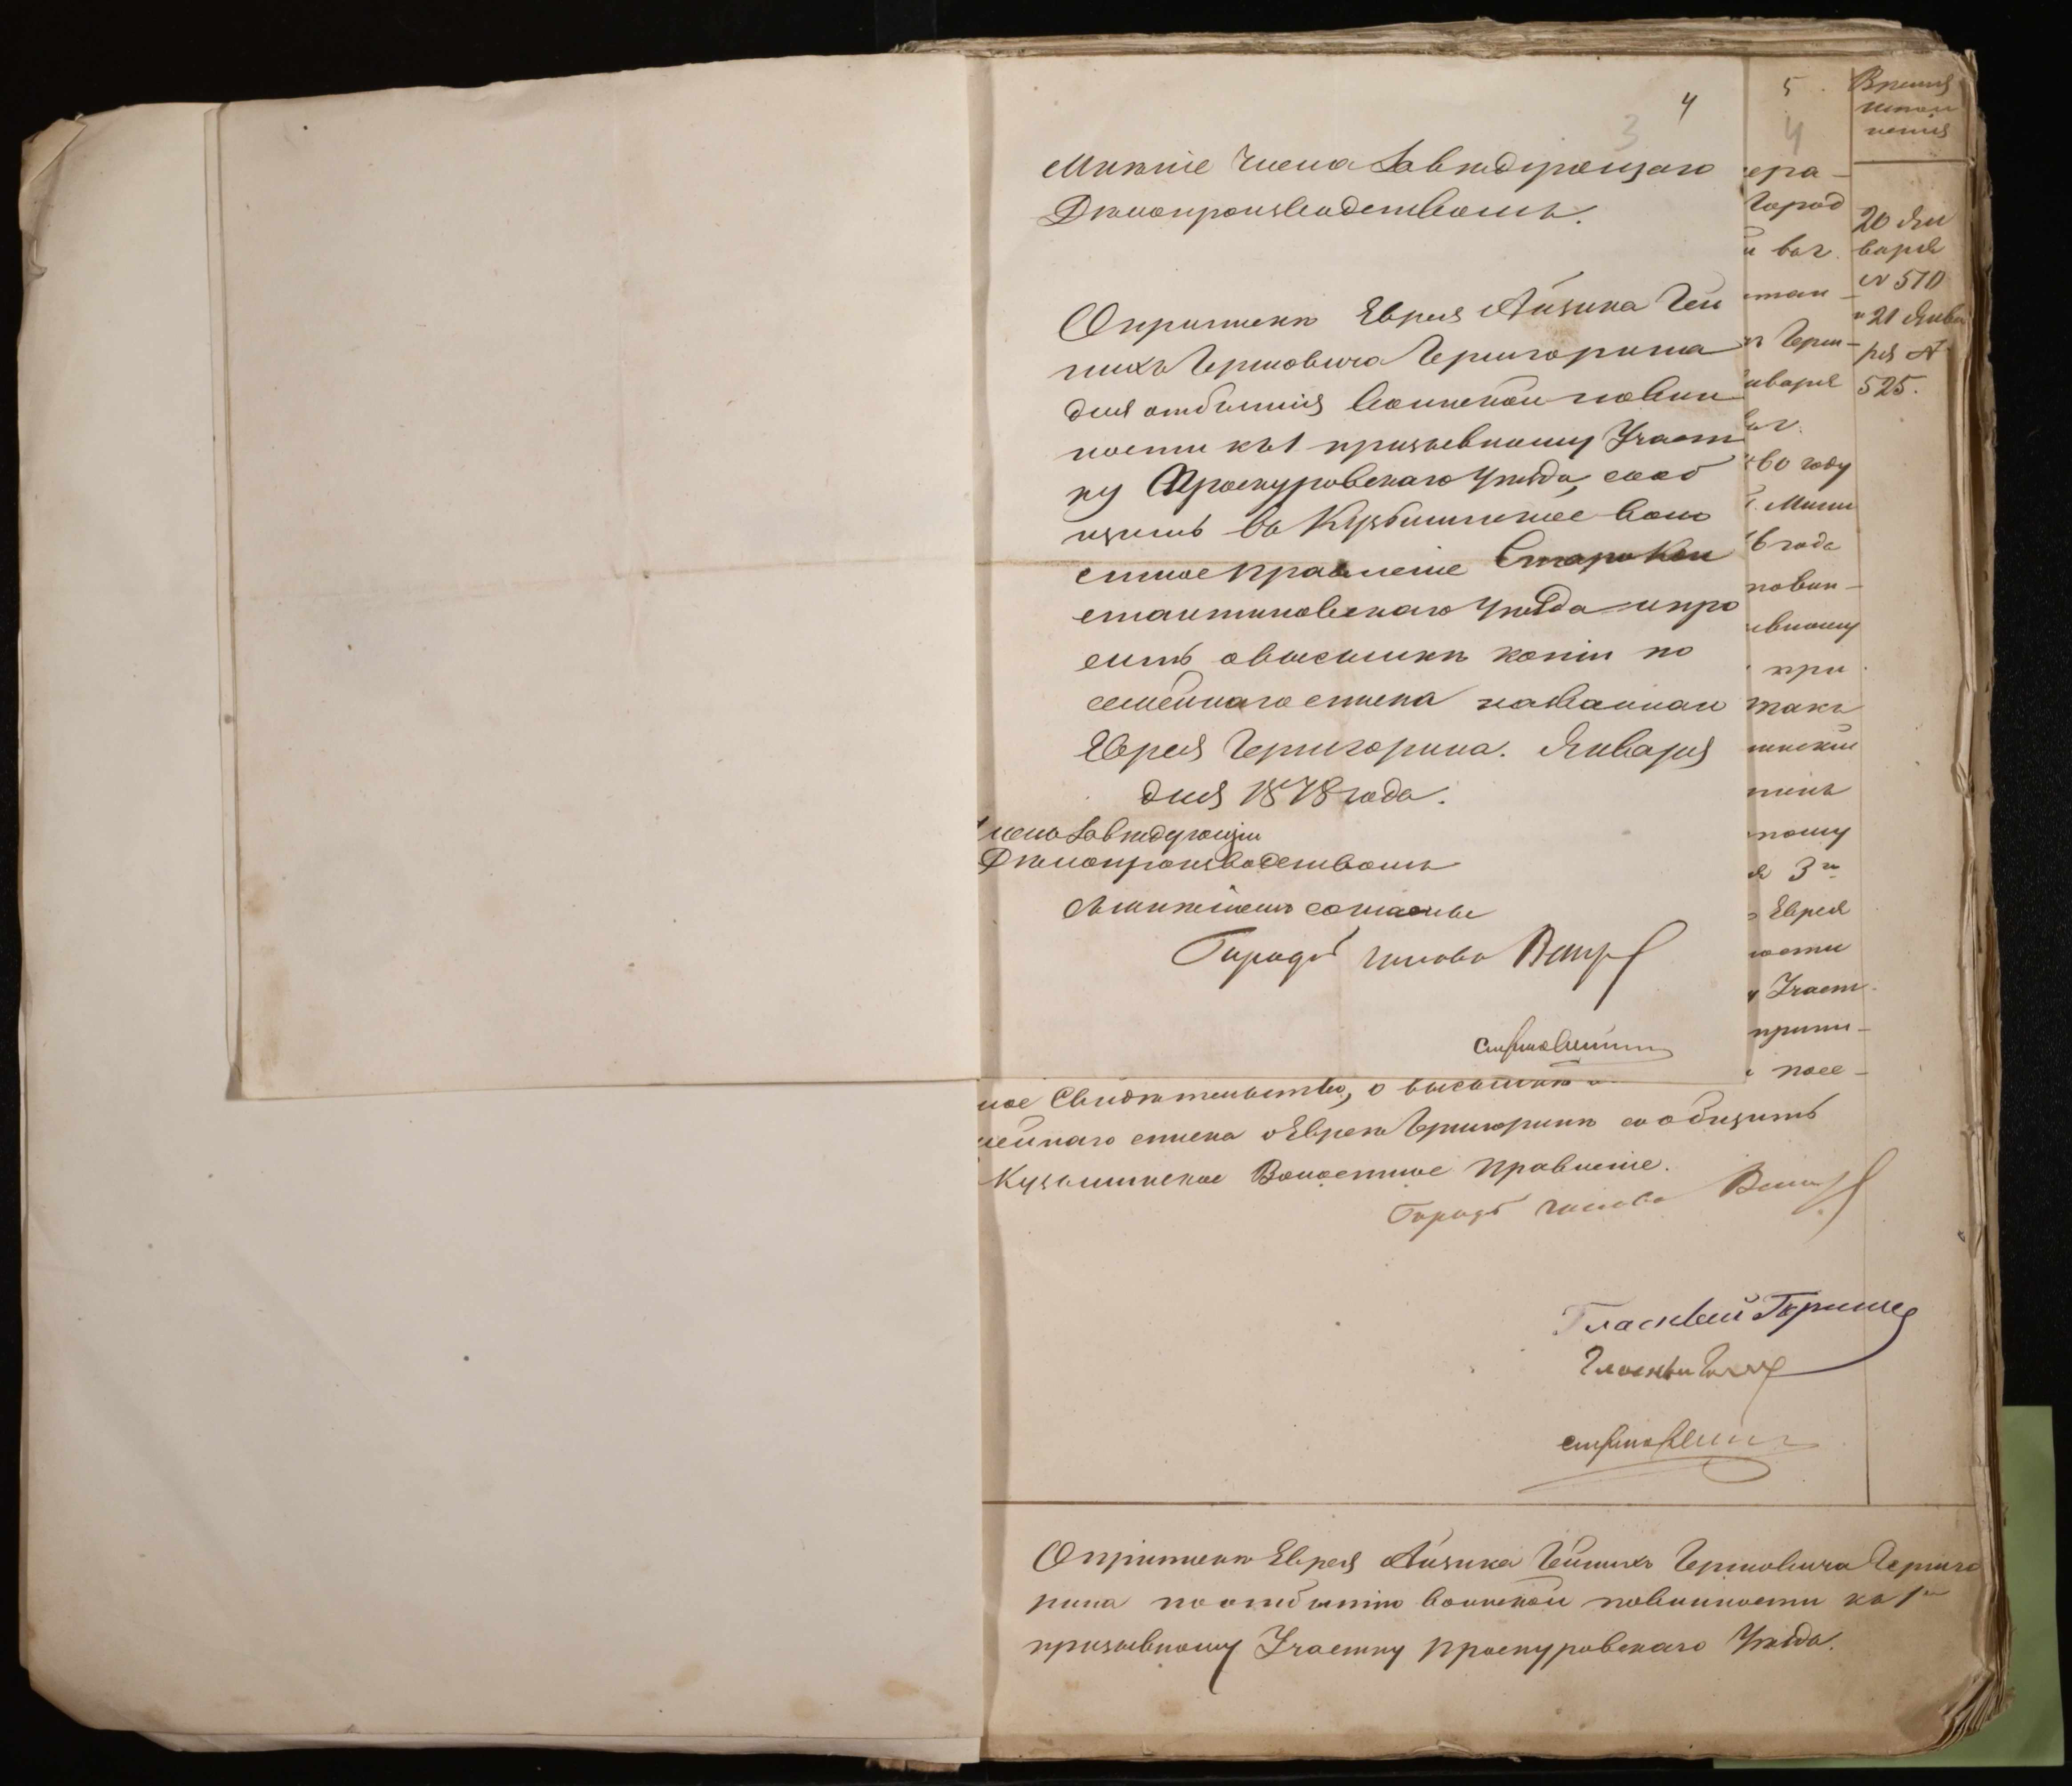 4
3
Мнѣніе Члена Завѣдующаго
Дѣлопроизводствомъ.
О припискѣ Еврея Айзика Гей
нихъ Гершовича Гершгорина
для отбытія воинской повин
ности къ 1 призывному Участ
ку Проскуровскаго уѣзда, сооб
щить въ Кузьминское воло
стное правленіе Старокон
стантиновскаго уѣзда и про
сить о высылкѣ копіи по
семейнаго списка названнаго
Еврея Гершгорина. Января
дня 1878 года.
Членъ Завѣдующій
Дѣлопроизводствомъ
Съ мнѣніемъ согласны
Городск голова
5
4
Время
испол
ненія
ера-
Город
и ваг.
ъ Герш-
нваря
60 году
6 года
повин-
ывному
при
такъ
3го
Еврея
ности
у Участ-
припи-
посе-
20 Ян
варя
№ 510
и 21 Янва
ря №
525.
ное Свидѣтельство, о высылкѣ
мейнаго списка о Евреѣ Гершгоринѣ сообщить
Кузьминское Волостное Правленіе.
Городск голова
Гласный
Гласный
О припискѣ Еврея Айзика Гейнихъ Гершовича Гершго
рина по отбытію воинской повинности къ 1му
призывному Участку Проскуровскаго Уѣзда.